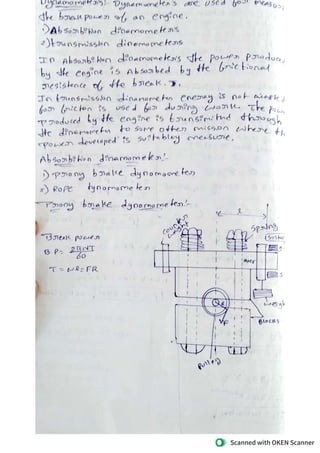 Dynamometers:- Dynamometers are used for measur
the break power of an engine.
1) Absorbition dinamometers
2) transmission dinamometers
In Absorbition dinamometers the power produce
by the engine is Absorbed by the frictional
resistence of the break.
In transmission dinamometer energy is not
for friction is used for during work. The pow
produced by the engine is transmitted through
the dinamometer to some other where th
power developed is suitabley measure.
Absorbition dinamometer:-
1) Prony brake dynomometer
2) Rope dynomometer
Prony brake dynomometer:-
Break power
B.P = 2πNT
60
T = WR = FR
Spring
Counter
weight
l
S
S
weigh
Blocks
F
Pulley
Scanned with OKEN Scanner